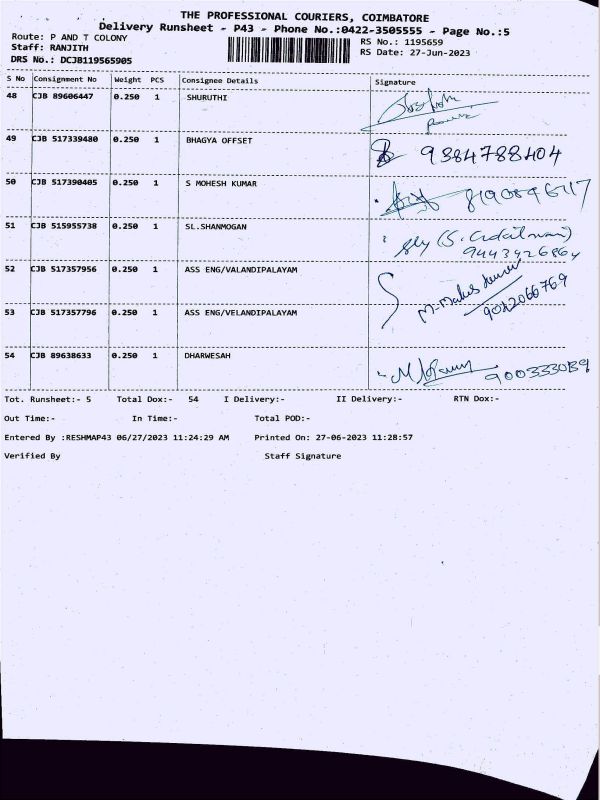 THE PROFESSIONAL COURIERS, COIMBATORE
Delivery Runsheet - P43 - Phone No.:0422-3505555 - Page No.:5
Route: P AND T COLONY
RS No.: 1195659
Staff: RANJITH
RS Date: 27-Jun-2023
DRS No.: DCJB119565905
S No Consignment No Weight PCS Consignee Details Signature
48 CJB 89606447 0.250 1 SHURUTHI
49 CJB 517339480 0.250 1 BHAGYA OFFSET 9384788404
50 CJB 517390405 0.250 1 S MOHESH KUMAR
51 CJB 515955738 0.250 1 SL.SHANMOGAN
9443926864
52 CJB 517357956 0.250 1 ASS ENG/VALANDIPALAYAM
9042066769
53 CJB 517357796 0.250 1 ASS ENG/VELANDIPALAYAM
54 CJB 89638633 0.250 1 DHARWESAH
Tot. Runsheet:- 5 Total Dox:- 54 I Delivery:- II Delivery:- RTN Dox:-
Out Time:- In Time:- Total POD:-
Entered By :RESHMAP43 06/27/2023 11:24:29 AM Printed On: 27-06-2023 11:28:57
Verified By Staff Signature